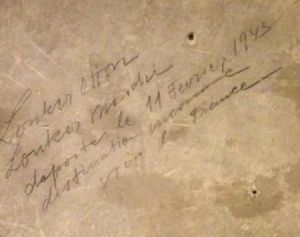 Lonker Léon
Lonker Maudei
déporté le 11 Février 1943
destination inconnue
vive la France